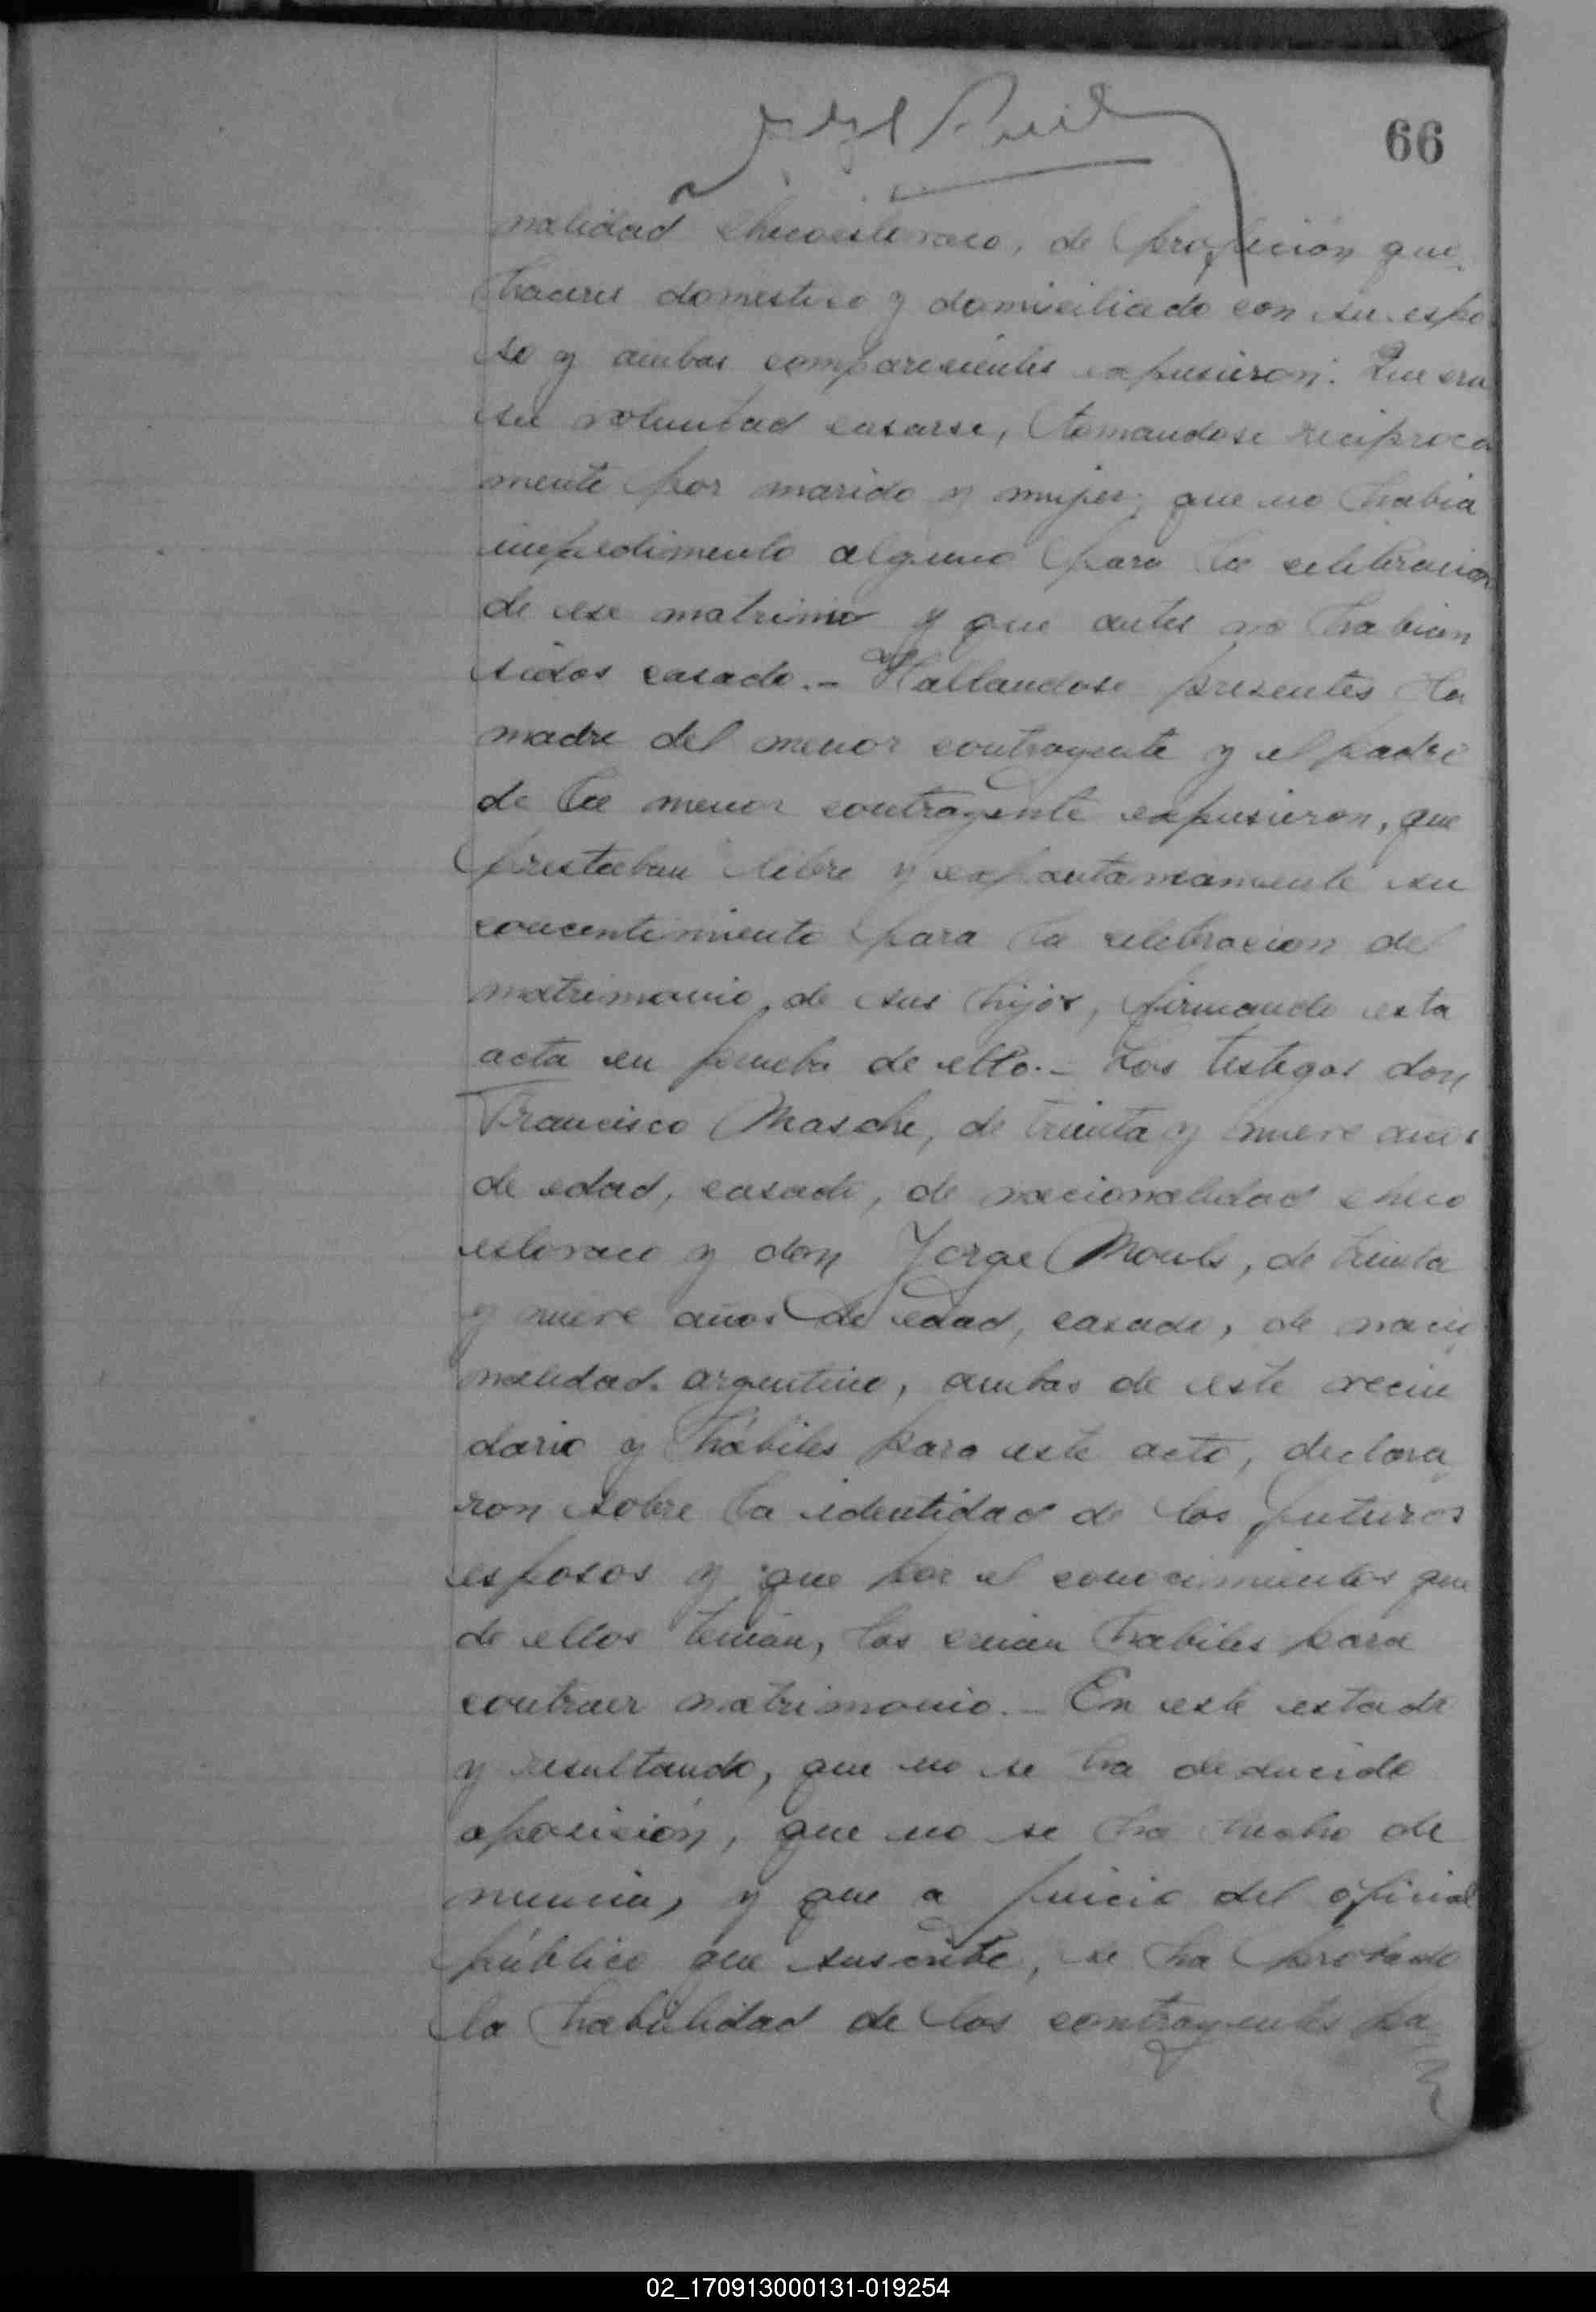 66
nalidad checoeslovaco, de profeción que
haceres domestico y domiciliado con su espo
so y ambos comparesientes expusieron: Que era
su voluntad casarse, tomandose reciproca
mente por marido y mujer; que no habia
impedimento alguno para la celebracion
de ese matrimio y que antes no habian
sidos casado.- Hallandose presentes la
madre del menor contrayente y el padre
de la menor contrayente expusieron, que
prestaban libre y expontaneamente su
concentimiento para la celebracion del
matrimonio de sus hijos, firmando esta
acta en prueba de ello.- Los testigos don
Francisco Masche, de treinta y nueve años
de edad, casado, de nacionalidad checo
eslovaco y don Jorge de treinta
y nueve años de edad, casado, de nacio
nalidad argentino, ambos de este vecin
dario y hábiles para este acto, declara
ron sobre la identidad de los futuros
esposos y que por el conocimientos que
de ellos tenian, los creian habiles para
contraer matrimonio.- En este estado
y resultando, que no se ha deducido
oposición, que no se ha hecho de
nuncia, y que a juicio del oficial
público que suscribe, se ha probado
la habilidad de los contrayentes pa
02_170913000131-019254